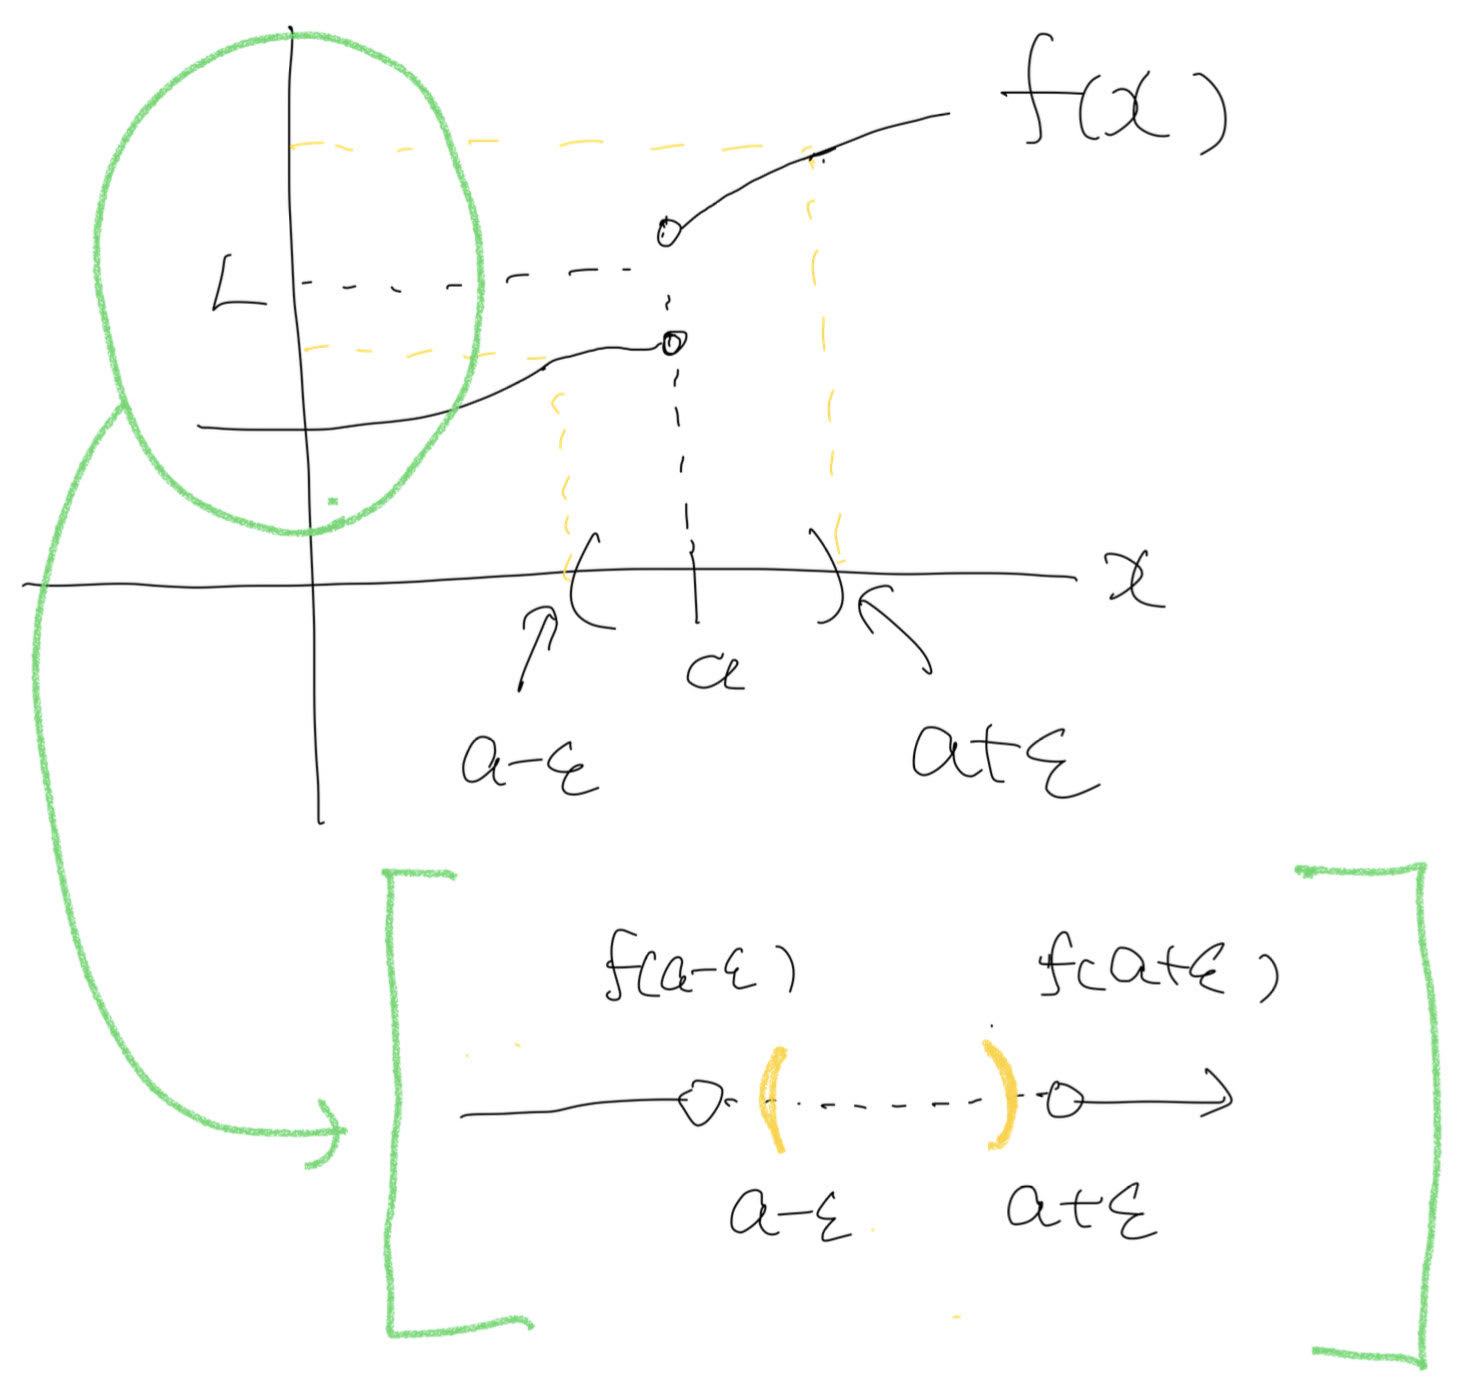 f(x)
L
x
a
a-ε a+ε
f(a-ε) f(a+ε)
a-ε a+ε